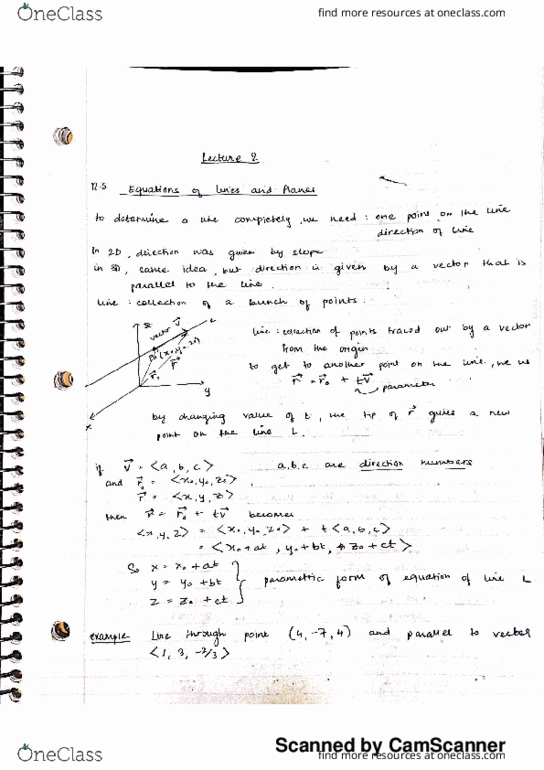 OneClass
find more resources at oneclass.com
Lecture 2
12.5 Equations of lines and Planes
to determine a line completely, we need : one point on the line
direction of line
In 2D, direction was given by slope
in 3D, same idea, but direction is given by a vector that is
parallel to the line.
line : collection of a bunch of points.
z
L
vector v⃗
P₀(x₀,y₀,z₀)
r⃗
r⃗₀
y
x
line : collection of points traced out by a vector
from the origin
to get to another point on the line, we us
r⃗ = r⃗₀ + tv⃗
parameter
by changing value of t, the tip of r⃗ gives a new
point on the line L.
if v⃗ = <a, b, c> a, b, c are direction numbers
and r⃗₀ = <x₀, y₀, z₀>
r⃗ = <x, y, z>
then r⃗ = r⃗₀ + tv⃗ becomes
<x, y, z> = <x₀, y₀, z₀> + t<a, b, c>
= <x₀+at, y₀+bt, z₀+ct>
So x = x₀ + at
y = y₀ + bt
z = z₀ + ct
parametric form of equation of line L
example Line through point (4, -7, 4) and parallel to vector
<1, 3, -2/3>
Scanned by CamScanner
OneClass
find more resources at oneclass.com